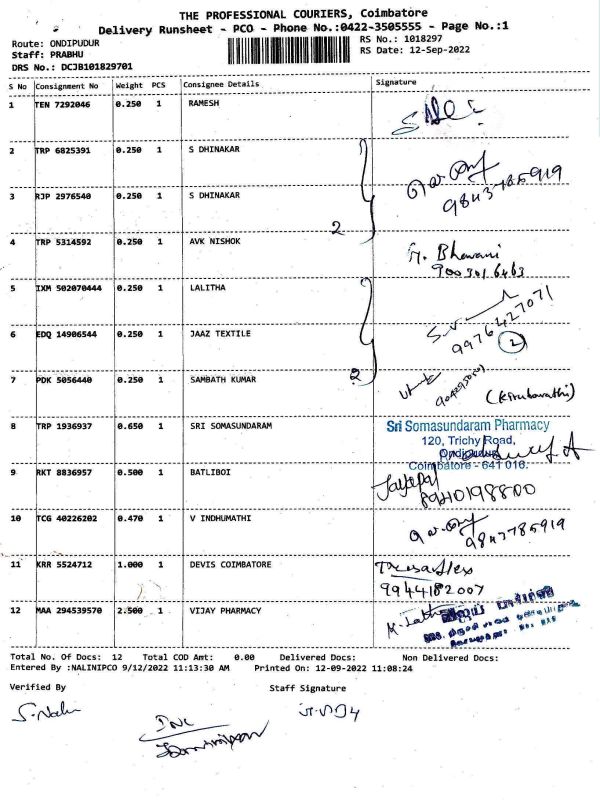 THE PROFESSIONAL COURIERS, Coimbatore
Delivery Runsheet - PCO - Phone No.:0422-3505555 - Page No.:1
Route: ONDIPUDUR
Staff: PRABHU
DRS No.: DCJB101829701
RS No.: 1018297
RS Date: 12-Sep-2022
S No Consignment No Weight PCS Consignee Details Signature
1 TEN 7292046 0.250 1 RAMESH
2 TRP 6825391 0.250 1 S DHINAKAR
9843785919
3 RJP 2976540 0.250 1 S DHINAKAR
2
4 TRP 5314592 0.250 1 AVK NISHOK M. Bhavani
9003016463
5 IXM 502070444 0.250 1 LALITHA
9976427071
6 EDQ 14906544 0.250 1 JAAZ TEXTILE
2
7 PDK 5056440 0.250 1 SAMBATH KUMAR
2
8 TRP 1936937 0.650 1 SRI SOMASUNDARAM Sri Somasundaram Pharmacy
120, Trichy Road,
Ondipudur
Coimbatore - 641 016.
9 RKT 8836957 0.500 1 BATLIBOI Jayapal
8940198800
10 TCG 40226202 0.470 1 V INDHUMATHI
9843785919
11 KRR 5524712 1.000 1 DEVIS COIMBATORE
9944182007
12 MAA 294539570 2.500 1 VIJAY PHARMACY
Total No. Of Docs: 12 Total COD Amt: 0.00 Delivered Docs: Non Delivered Docs:
Entered By :NALINIPCO 9/12/2022 11:13:30 AM Printed On: 12-09-2022 11:08:24
Verified By Staff Signature